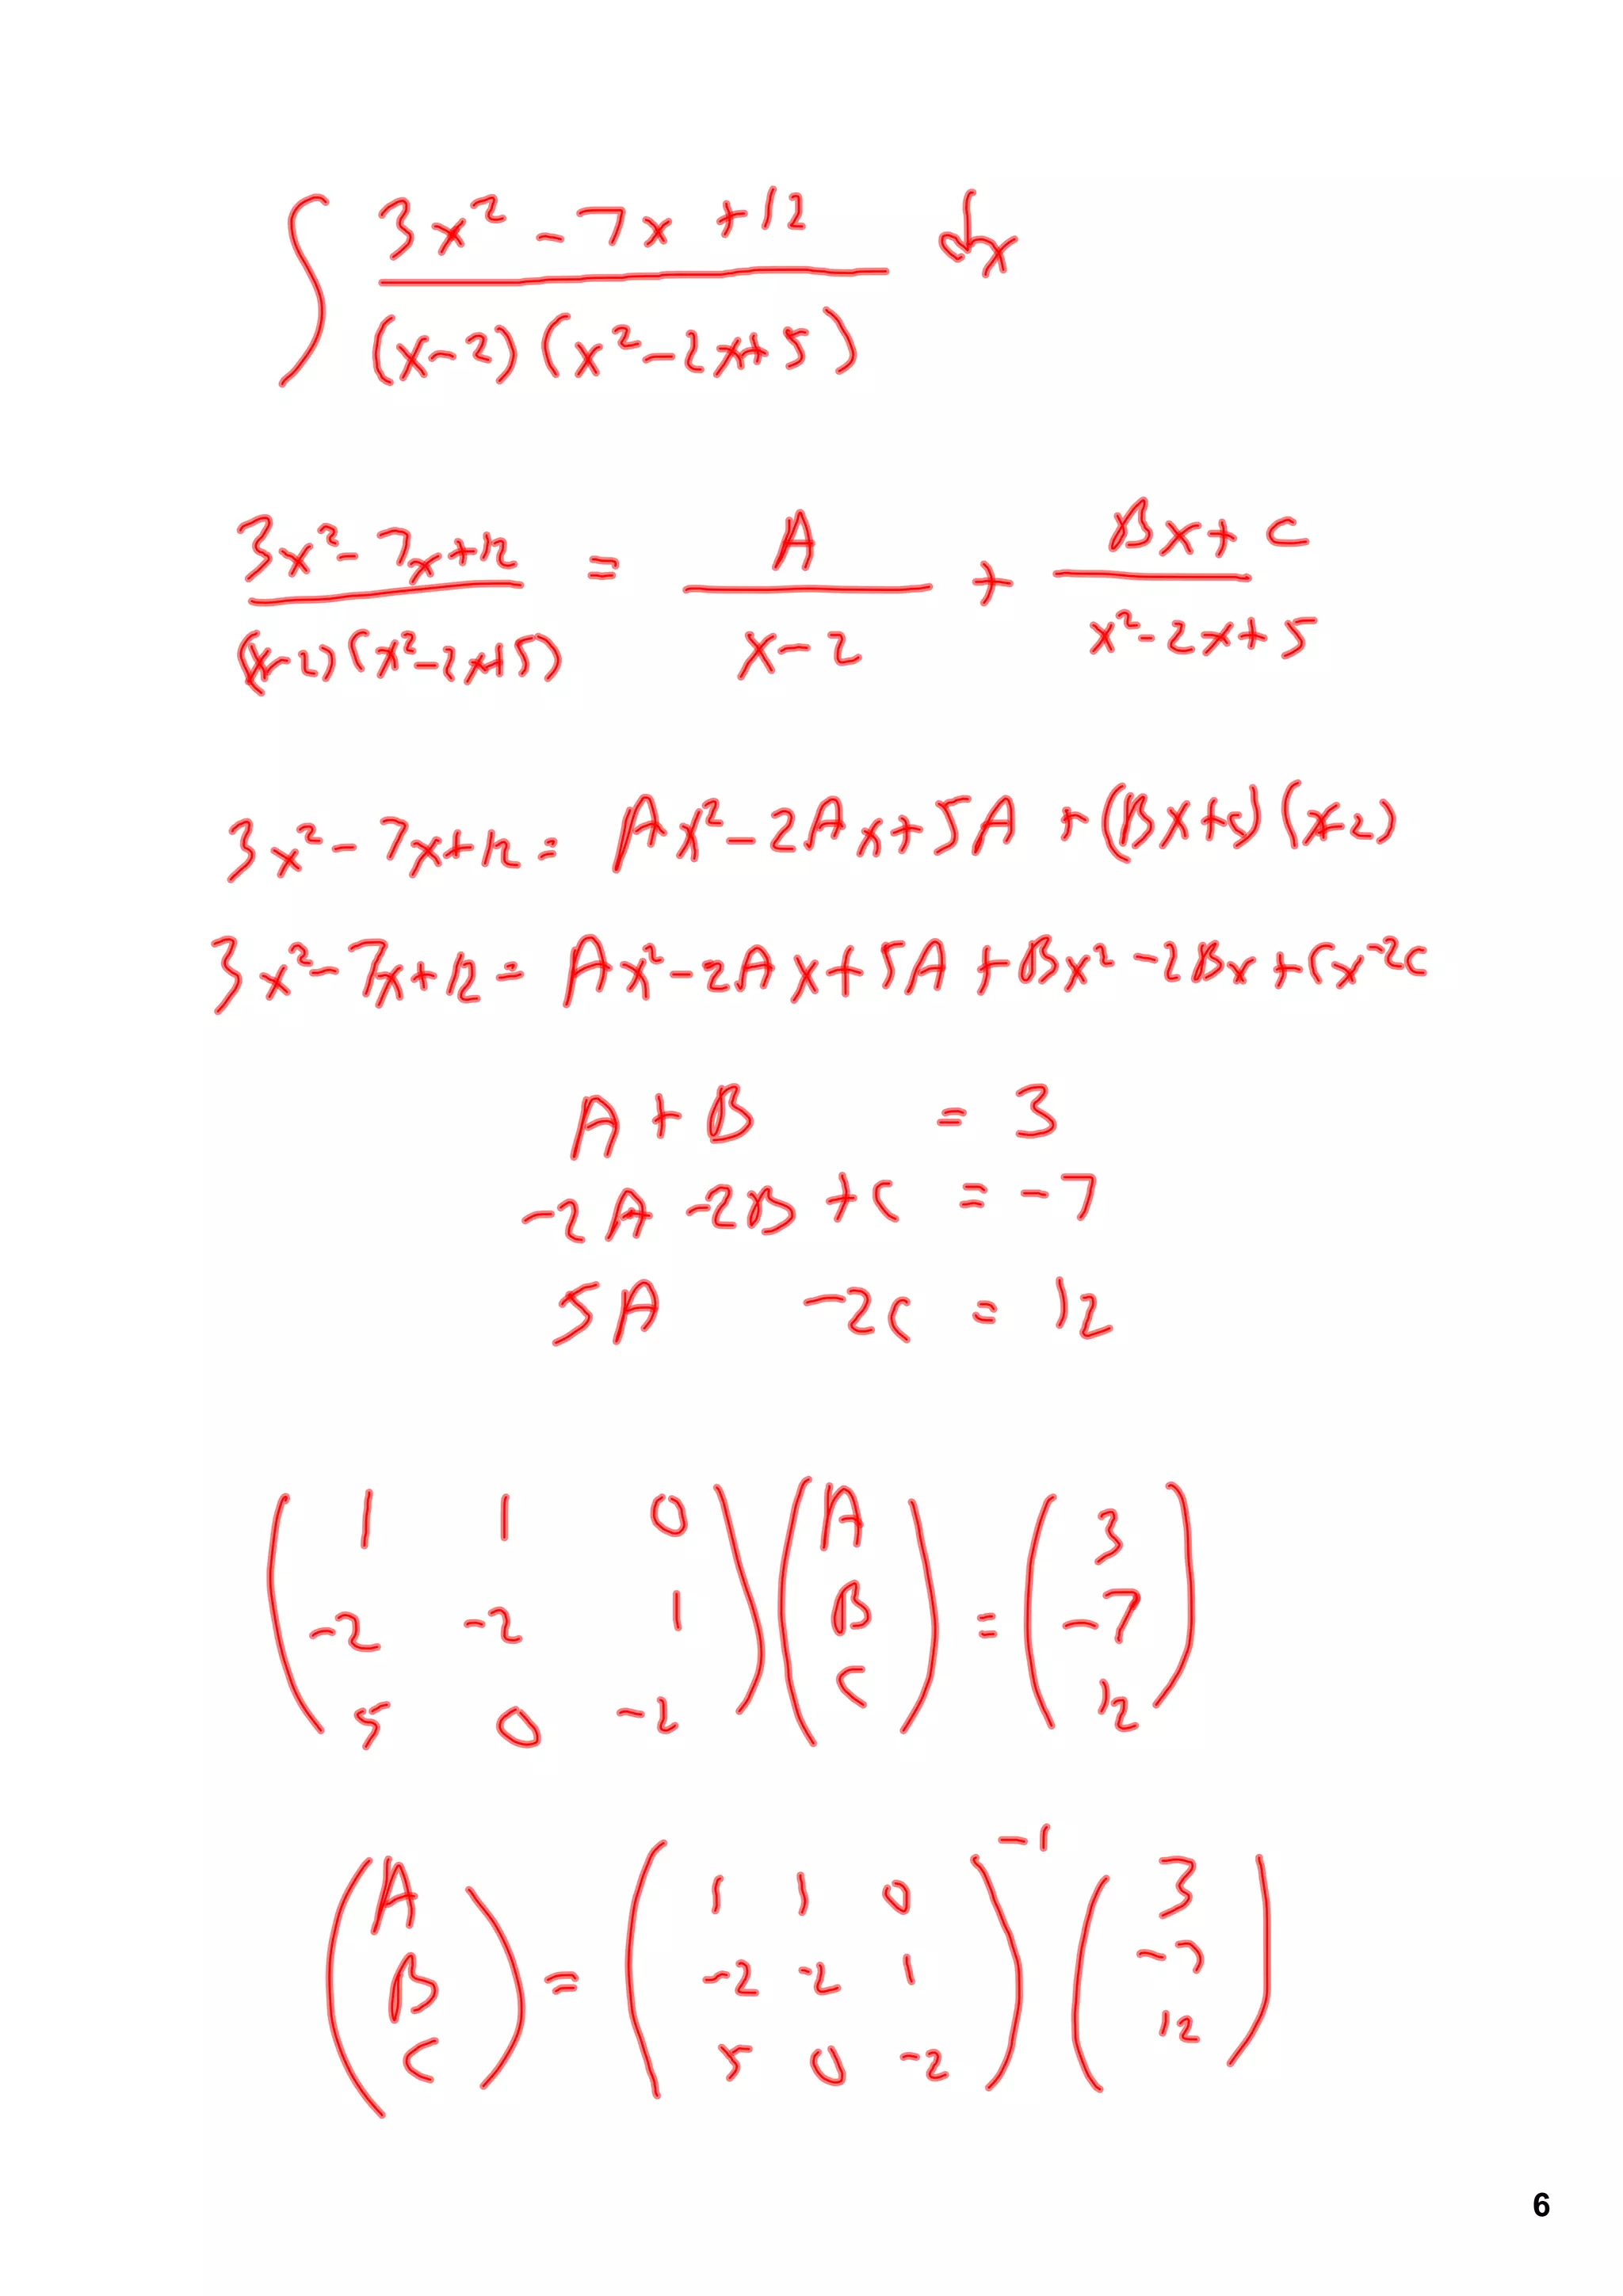 ∫ (3x² - 7x + 12) / ((x-2)(x²-2x+5)) dx
(3x² - 7x + 12) / ((x-2)(x²-2x+5)) = A / (x-2) + (Bx + C) / (x²-2x+5)
3x² - 7x + 12 = Ax² - 2Ax + 5A + (Bx+c)(x-2)
3x² - 7x + 12 = Ax² - 2Ax + 5A + Bx² - 2Bx + Cx - 2C
A + B = 3
-2A - 2B + C = -7
5A - 2C = 12
( 1 1 0 ) ( A ) = ( 3 )
( -2 -2 1 ) ( B ) = ( -7 )
( 5 0 -2 ) ( C ) = ( 12 )
( A ) = ( 1 1 0 )⁻¹ ( 3 )
( B ) = ( -2 -2 1 ) ( -7 )
( C ) = ( 5 0 -2 ) ( 12 )
6